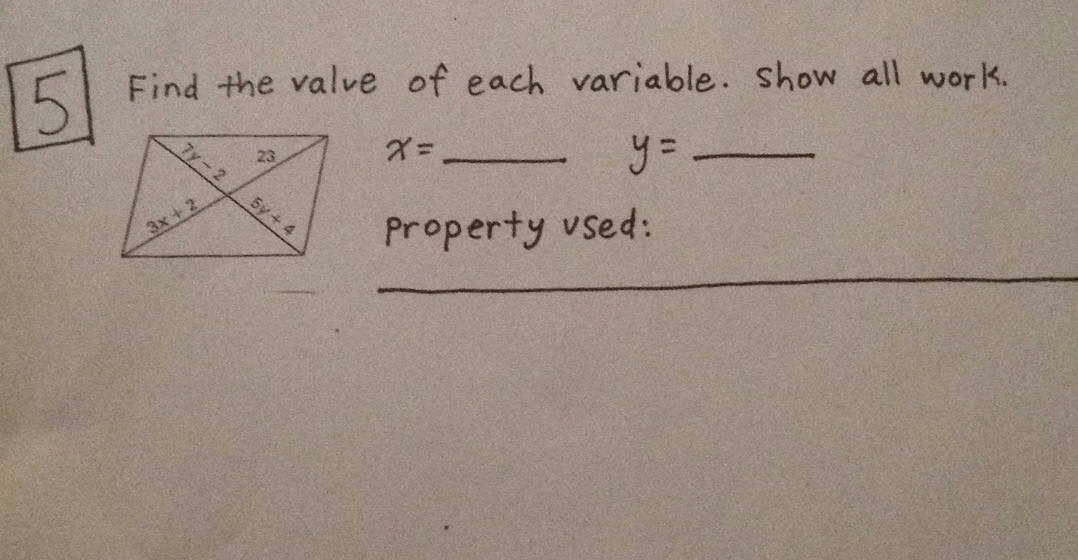 5 Find the value of each variable. Show all work.
7y - 2 23 x= y=
3x + 2 5y + 4
property used: